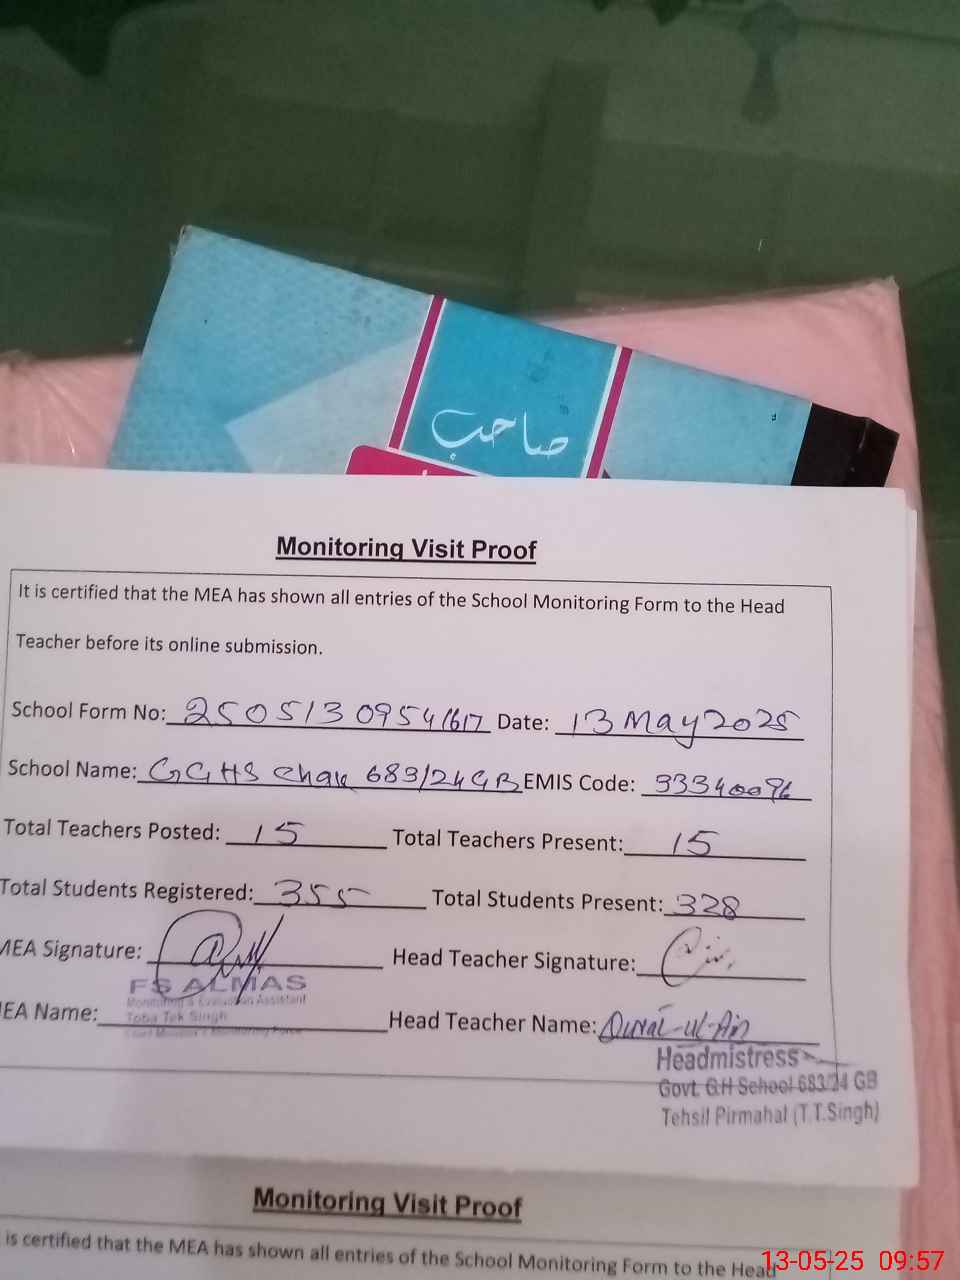 صاحب
Monitoring Visit Proof
It is certified that the MEA has shown all entries of the School Monitoring Form to the Head
Teacher before its online submission.
School Form No: 250513095541617 Date: 13 May 2025
School Name: GGHS Chak 683/24GB EMIS Code: 33340096
Total Teachers Posted: 15 Total Teachers Present: 15
Total Students Registered: 355 Total Students Present: 328
MEA Signature: Head Teacher Signature:
FS ALMAS
Monitoring & Evaluation Assistant
Toba Tek Singh
EA Name: Head Teacher Name: Qurat-ul-Ain
Headmistress
Govt. G.H School 683/24 GB
Tehsil Pirmahal (T.T.Singh)
Monitoring Visit Proof
is certified that the MEA has shown all entries of the School Monitoring Form to the Head
13-05-25 09:57